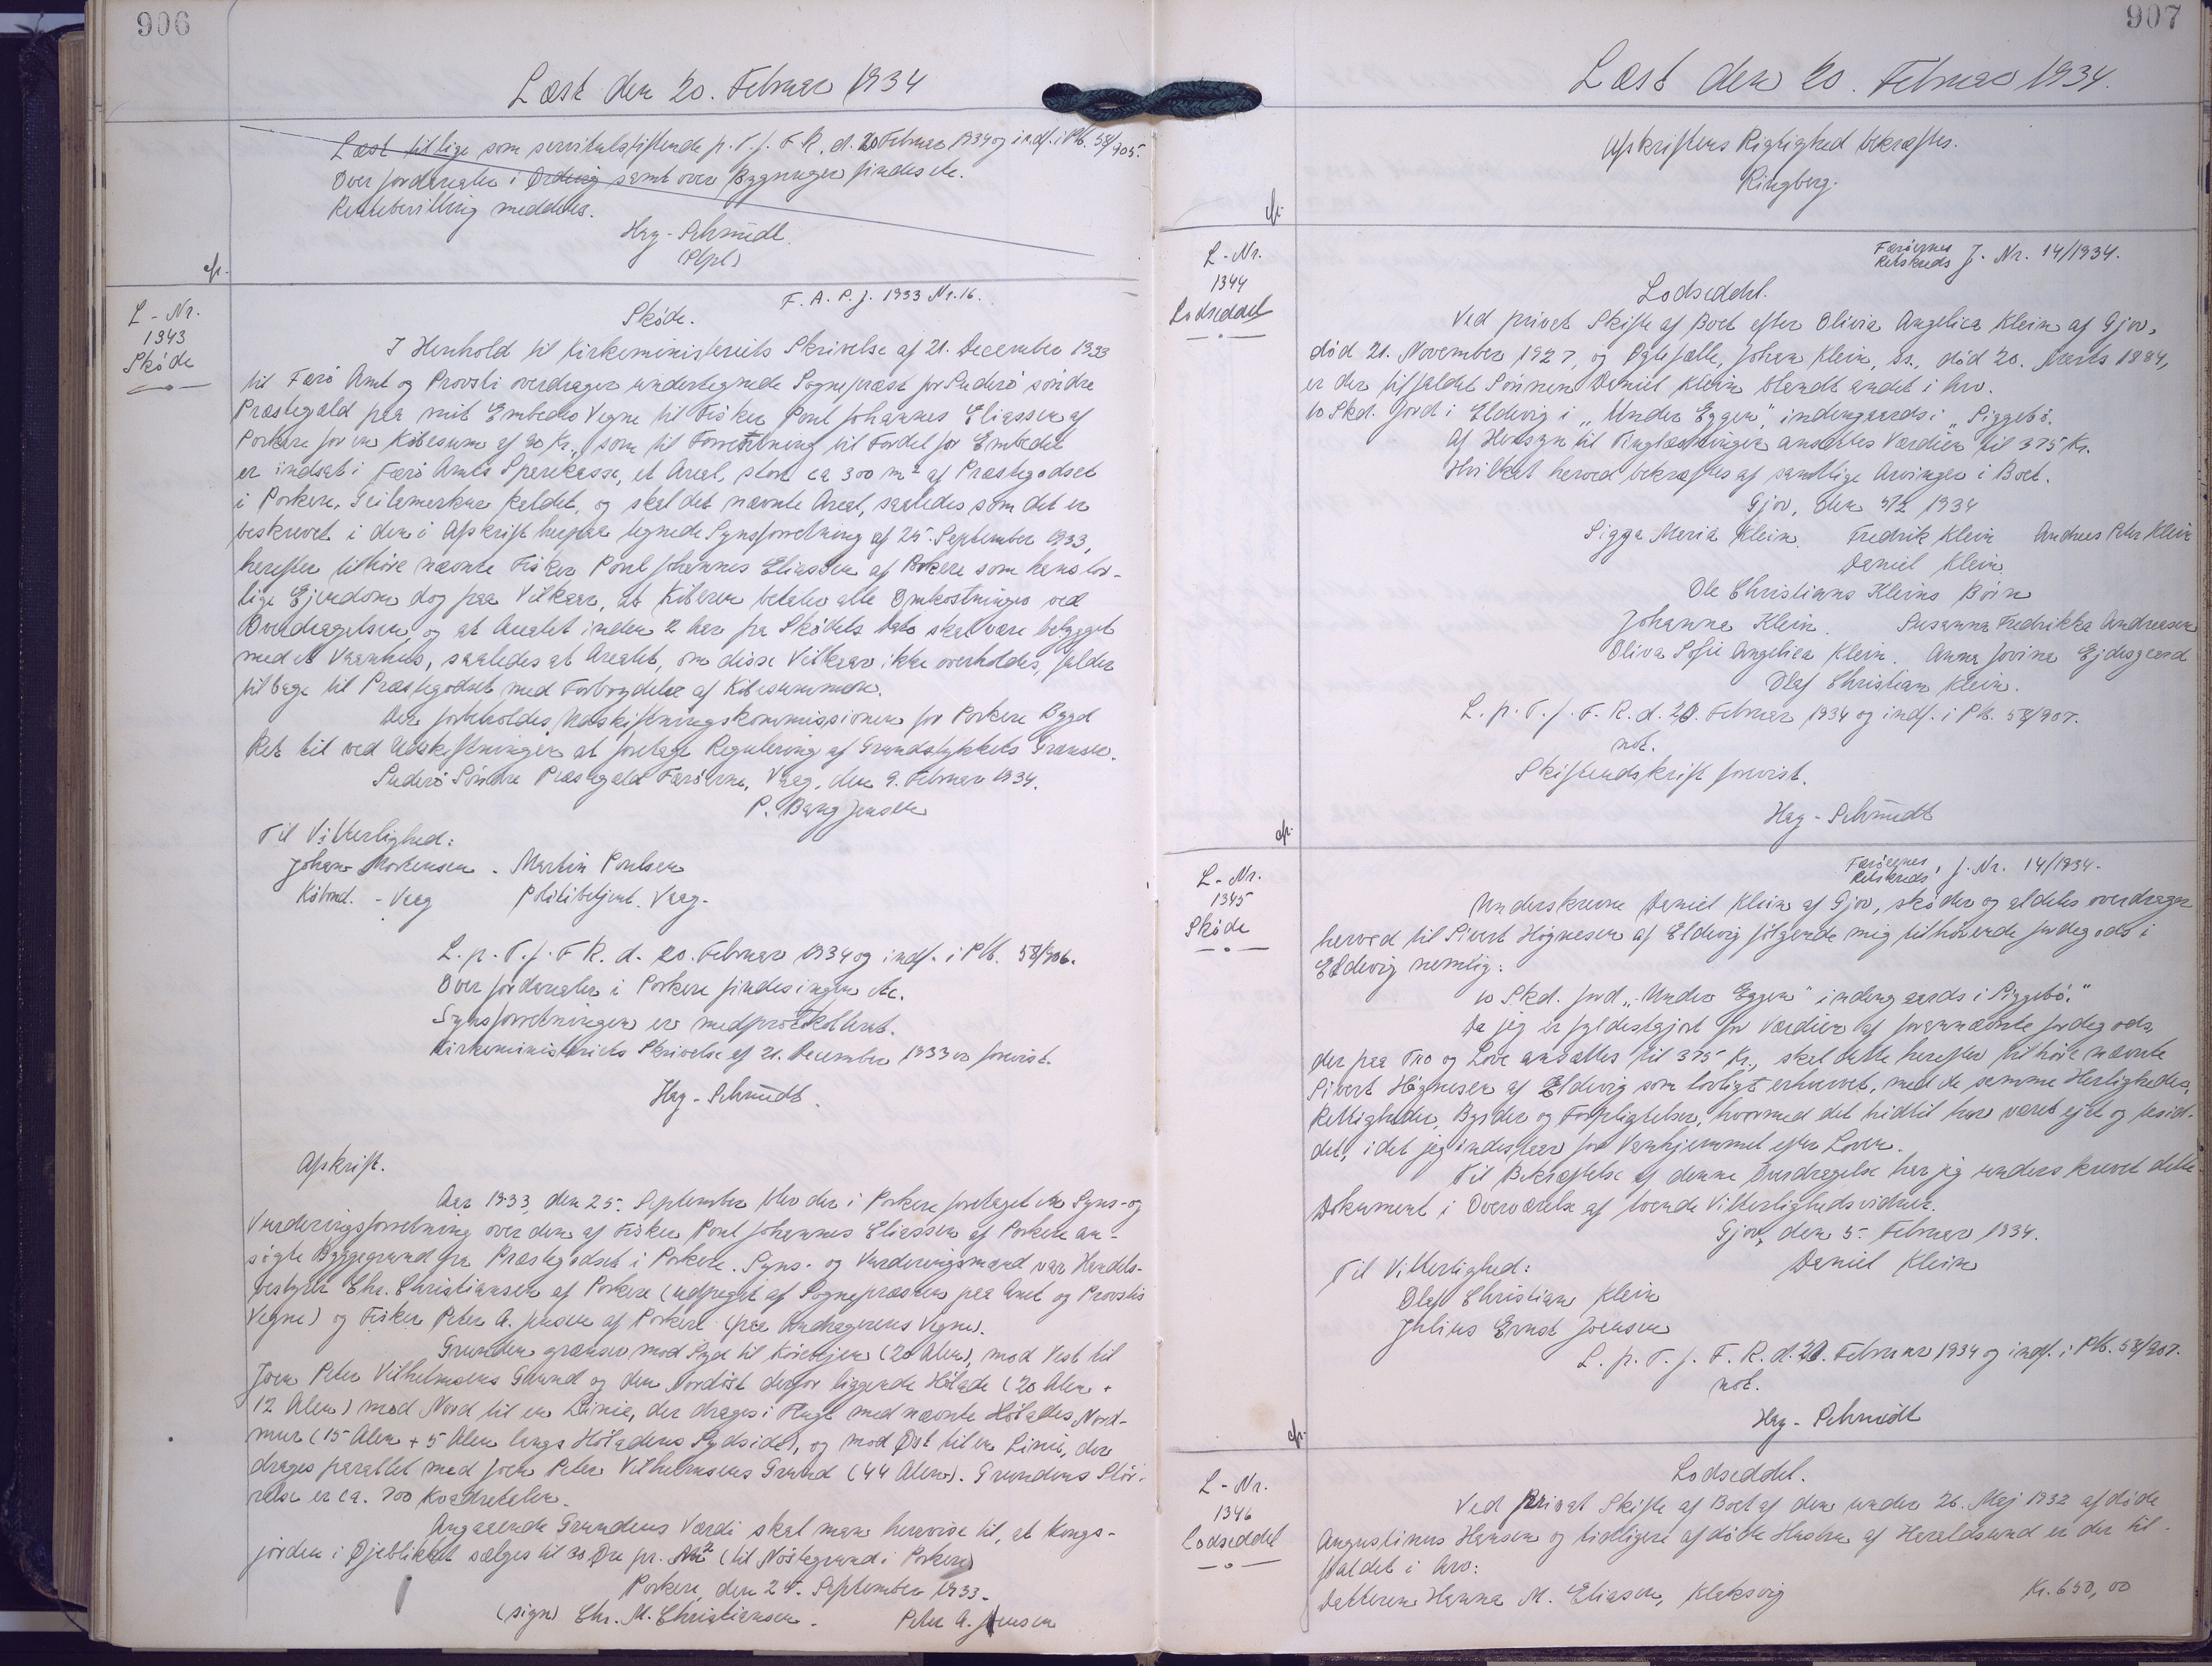 906
Læst den 20. Februar 1934
Læst tillige som servitutstiftende p. T. f. F. R. d. 20 Februar 1934 og indf. i Pb. 58/905.
Over Jordarealer i samt over Bygninger findes etc.
Retsbevilling meddeles.
Hag-Schmidt.
(Plpl)
cfr.
L-Nr.
1343
Skøde
F. A. P. J. 1933 Nr. 16.
Skøde.
I Henhold til Kirkeministeriets Skrivelse af 21. December 1933
til Færø Amt og Provsti overdrager undertegnede Sognepræst for Suderø søndre
Præstegæld paa mit Embedes Vegne til Fisker Poul Johannes Eliassen af
Porkere for en Købesum af 90 Kr., som til Forrentning til Fordel for Embedet
er indsat i Færø Amts Sparekasse, et Areal, stort ca 300 m² af Præstegodset
i Porkere, Geilamerkur kaldet, og skal det nævnte Areal, saaledes som det er
beskrevet i den i Afskrift herpaa tegnede Synsforretning af 25. September 1933,
herefter tilhøre nævnte Fisker Poul Johannes Eliassen af Porkere som hans lov-
lige Ejendom dog paa Vilkaar, at Køberen betaler alle Omkostninger ved
Overdragelsen, og at Arealet inden 2 Aar fra Skødets Dato skal være bebygget
med et Vaanhus, saaledes at Arealet, om disse Vilkaar ikke overholdes, falder
tilbage til Præstegodset med Forbrydelse af Købesummen.
Der forbeholdes Udskiftningskommissionen for Porkere Bygd
Ret til ved Udskiftningen at foretage Regulering af Grundstykkets Grænser.
Suderø Søndre Præstegæld Færøerne, Vaag, den 9. Februar 1934.
P. Bang Jensen
Til Vitterlighed:
Johan Mortensen . Martin Poulsen
Købmd. - Vaag Politibetjent. Vaag.
L. p. T. f. F. R. d. 20. Februar 1934 og indf. i Pb. 58/906.
Over Jordarealer i Porkere findes ingen etc.
Synsforretningen er medprotokolleret.
Kirkeministeriets Skrivelse af 21. December 1933 er forevist.
Hag-Schmidt.
Afskrift.
Aar 1933, den 25. September blev der i Porkere foretaget en Syns- og
Vurderingsforretning over den af Fisker Poul Johannes Eliassen af Porkere an-
søgte Byggegrund fra Præstegodset i Porkere. Syns- og Vurderingsmænd var Handels-
bestyrer Chr. Christiansen af Porkere (udpeget af Sognepræsten paa Amt og Provstis
Vegne) og Fisker Peter A. Jensen af Porkere (paa Andragerens Vegne).
Grunden grænser mod Syd til Kørevejen (20 Alen), mod Vest til
Joen Peter Vilhelmsens Grund og den Nordøst derfor liggende Hølade (20 Alen +
12 Alen) mod Nord til en Linie, der drages i Flugt med nævnte Hølades Nord-
mur (15 Alen + 5 Alen langs Høladens Sydside), og mod Øst til en Linie, der
drages parallel med Joen Peter Vilhelmsens Grund (44 Alen). Grundens Stør-
relse er ca. 700 Kvadratalen.
Angaaende Grundens Værdi skal man henvise til, at Kongs-
jorden i Øjeblikket sælges til 30 Øre pr. m² (til Nøstegrund i Porkere)
Porkere, den 25. September 1933.
(sign) Chr. M. Christiansen. Peter A. Jensen
907
Læst den 20. Februar 1934.
Afskriftens Rigtighed bekræftes.
Ringberg.
cfr.
L-Nr.
1344
Lodseddel
Færøernes
Retskreds J. Nr. 14/1934.
Lodseddel.
Ved privat Skifte af Boet efter Olivia Angelica Klein af Gjov,
død 21. November 1927, og Ægtefælle, Johan Klein, ds., død 20. Marts 1884,
er der tilfaldet Sønnen Daniel Klein blandt andet i Arv.
10 Skd. Jord i Eldevig i „Under Eggen“, indengaards i „Siggebø.
Af Hensyn til Tinglæsningen ansættes Værdien til 375 Kr.
Hvilket herved bekræftes af samtlige Arvinger i Boet.
Gjov, den 5/2 1934
Sigga Maria Klein. Fredrik Klein Andreas Peter Klein
Daniel Klein
Ole Christians Kleins Børn
Johanna Klein. Susanna Fredrikka Andreasen
Oliva Sofie Angelica Klein. Anna Jovina Ejdesgaard
Olaf Christian Klein.
L. p. T. f. F. R. d. 20. Februar 1934 og indf. i Pb. 58/907.
not.
Skifteudskrift forevist.
Hag-Schmidt
cfr.
L-Nr.
1345
Skøde
Færøernes
Retskreds J. Nr. 14/1934.
Underskrevne Daniel Klein af Gjov, skøder og aldeles overdrager
herved til Sivert Høgnesen af Eldevig følgende mig tilhørende Jordegods i
Eldevig nemlig:
10 Skd. Jord „Under Eggen“ indengaards i Siggebø.“
Da jeg er fyldestgjort for Værdien af forannævnte Jordegods,
der paa Tro og Love ansættes til 375 Kr., skal dette herefter tilhøre nævnte
Sivert Høgnesen af Eldevig som lovligt erhvervet, med de samme Herligheder,
Rettigheder, Byrder og Forpligtelser, hvormed det hidtil har været ejet og besid-
det, idet jeg indestaar for Vanhjemmel efter Loven.
Til Bekræftelse af denne Overdragelse har jeg underskrevet dette
Dokument i Overværelse af tvende Vitterlighedsvidner.
Gjov, den 5. Februar 1934.
Til Vitterlighed: Daniel Klein
Olaf Christian Klein
Julius Ernst Joensen
L. p. T. f. F. R. d. 20. Februar 1934 og indf. i Pb. 58/907.
not.
Hag-Schmidt
cfr.
L-Nr.
1346
Lodseddel
Lodseddel.
Ved privat Skifte af Boet af den under 26. Maj 1932 afdøde
Augustinus Hansen og tidligere afdøde Hustru af Haraldsund er der til-
faldet i Arv:
Datteren Hanna M. Eliasen, Klaksvig Kr. 650,00